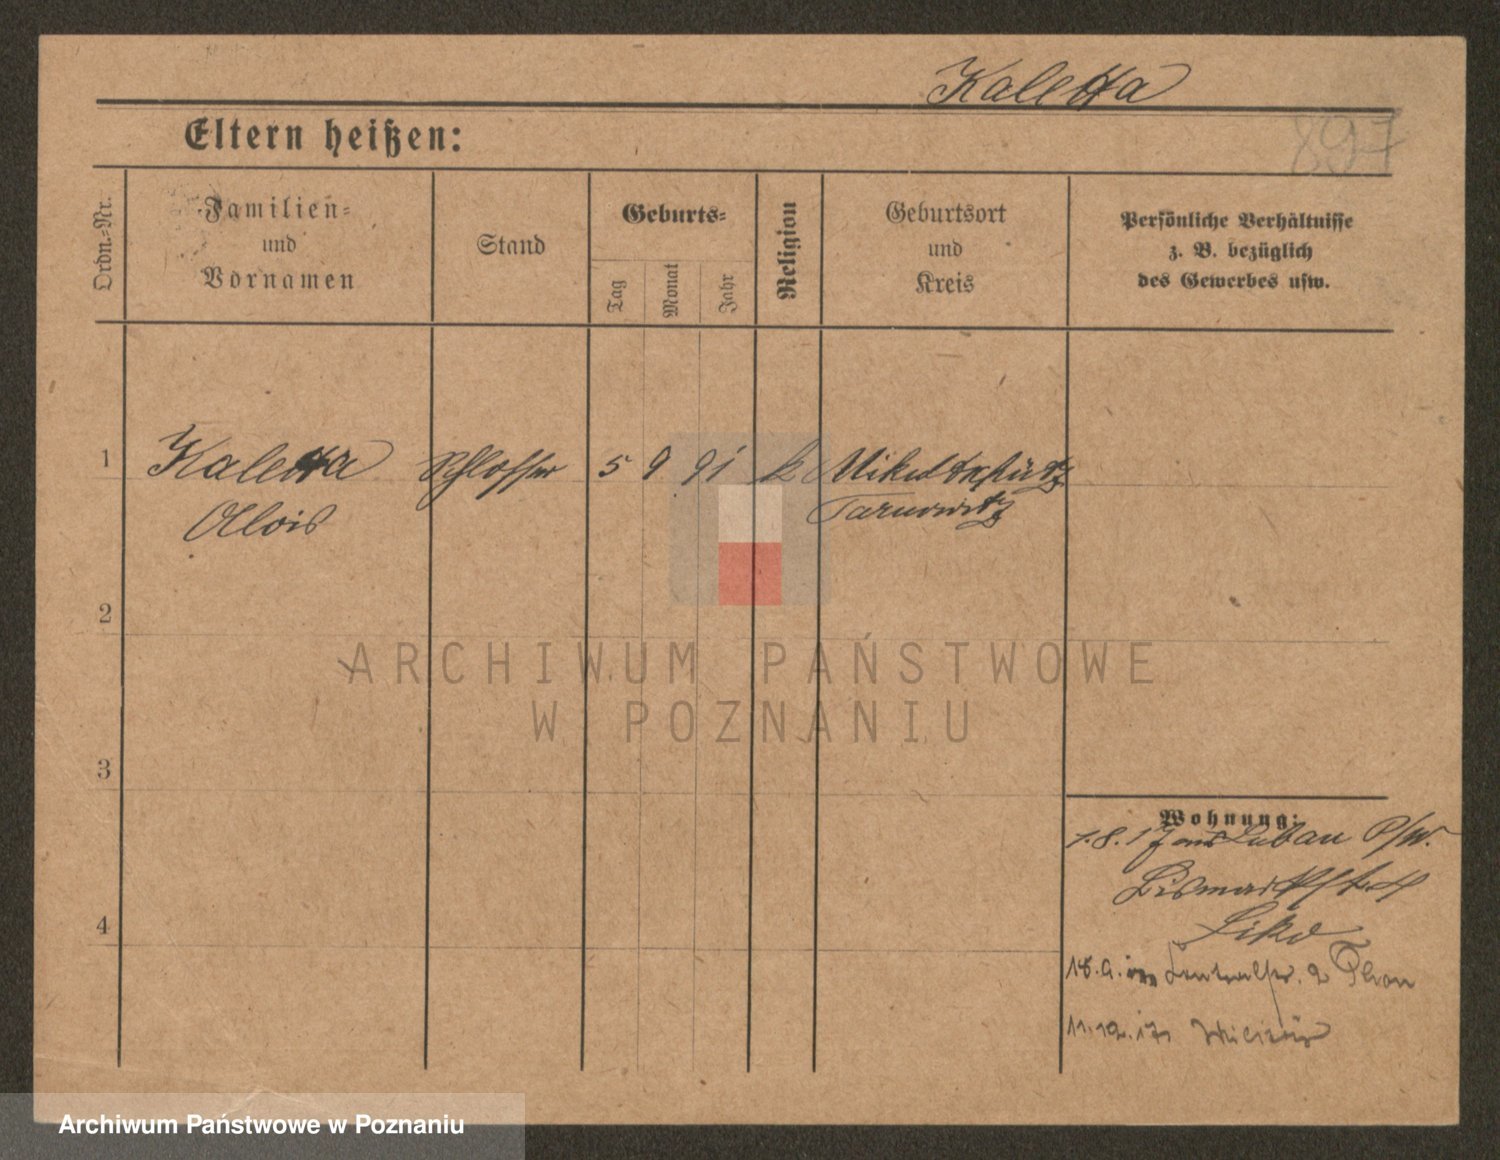 Kaletta
Eltern heißen:
897
Ordn.-Nr.
Familien-
und
Vornamen
Stand
Geburts-
Tag
Monat
Jahr
Religion
Geburtsort
und
Kreis
Persönliche Verhältnisse
z. B. bezüglich
des Gewerbes usw.
1
Kaletta
Alois
Schlosser
5
9
91
k
Mikultschütz
Tarnowitz
2
3
4
Wohnung:
1.8.17 aus Luban P/W.
Bismarckstr.
18.9. Centralstr. 2
11.12.17
ARCHIWUM PAŃSTWOWE
W POZNANIU
Archiwum Państwowe w Poznaniu